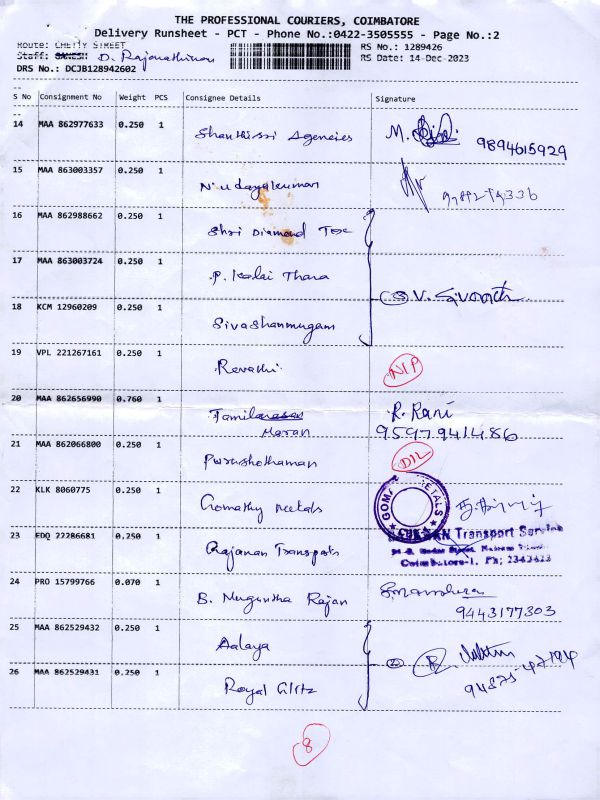 THE PROFESSIONAL COURIERS, COIMBATORE
Delivery Runsheet - PCT - Phone No.:0422-3505555 - Page No.:2
Route: CHETTY STREET RS No.: 1289426
Staff: D. Rajamathivnan RS Date: 14-Dec-2023
DRS No.: DCJB128942602
S No Consignment No Weight PCS Consignee Details Signature
14 MAA 862977633 0.250 1 Shanthissi Agencies M. 9894615929
15 MAA 863003357 0.250 1 N. udayakumar
16 MAA 862988662 0.250 1 Shri Diamond Tex
17 MAA 863003724 0.250 1 P. Kalai Thara
18 KCM 12960209 0.250 1 Sivashanmugam
V.
19 VPL 221267161 0.250 1 Revathi N/P
20 MAA 862656990 0.760 1 Tamil Maran R. Rani
9597941486
21 MAA 862066800 0.250 1 Purushothaman D/L
22 KLK 8060775 0.250 1 Gomathy Metals GOMA METALS
23 EDQ 22286681 0.250 1 Rajaman Transports Transport Service
Coimbatore-1. Ph: 2343423
24 PRO 15799766 0.070 1 B. Muguntha Rajan
9443177303
25 MAA 862529432 0.250 1 Aalaya
26 MAA 862529431 0.250 1 Royal Glitz
8